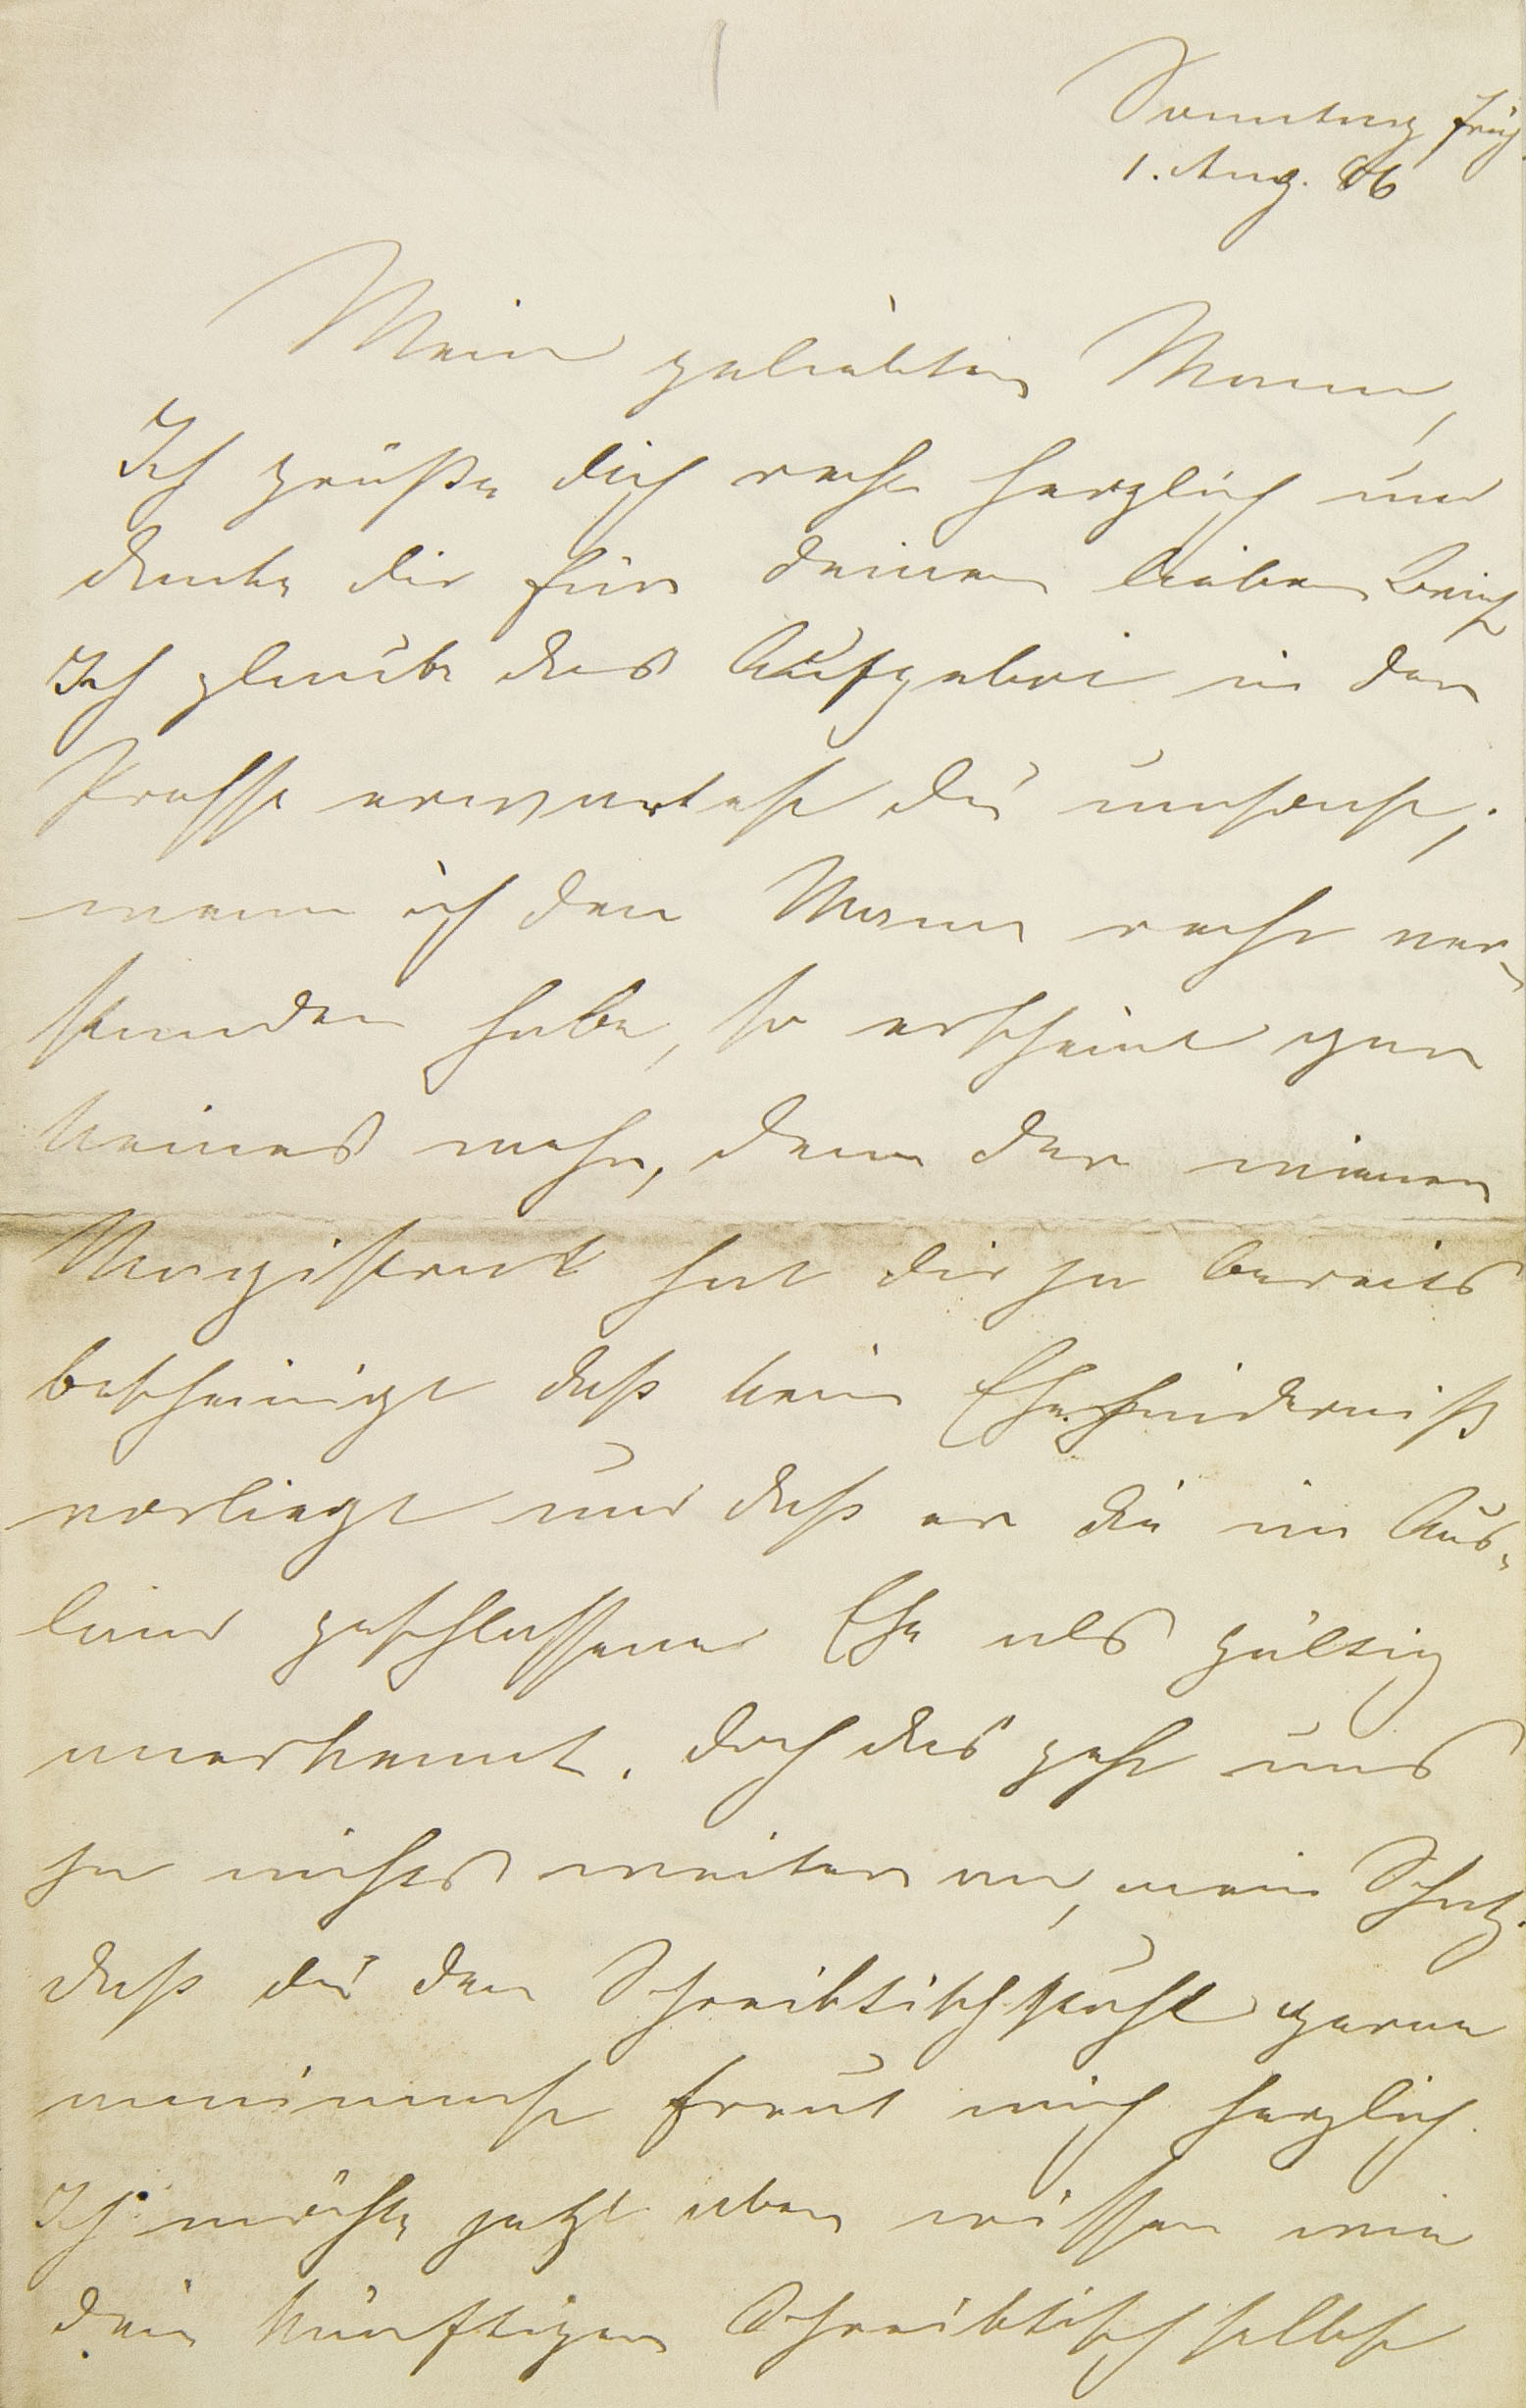 Sonntag früh
1. Aug. 86
Mein geliebter Mann,
Ich grüße dich recht herzlich und
danke dir für deinen lieben Brief
Ich glaube das Aufgebot in der
Presse erwartest du umsonst;
wenn ich den Mann recht ver-
standen habe, so erscheint gar
keines mehr, denn der wiener
Magistrat hat dir ja bereits
bescheinigt daß kein Ehehinderniß
vorliegt und daß er die im Aus-
land geschlossene Ehe als gültig
anerkennt. Doch das geht uns
ja nichts weiter an, mein Schatz.
Daß du den Schreibtischstuhl gerne
annimmst freut mich herzlich.
Ich möchte jetzt aber wissen wie
dein künftiger Schreibtisch selbst